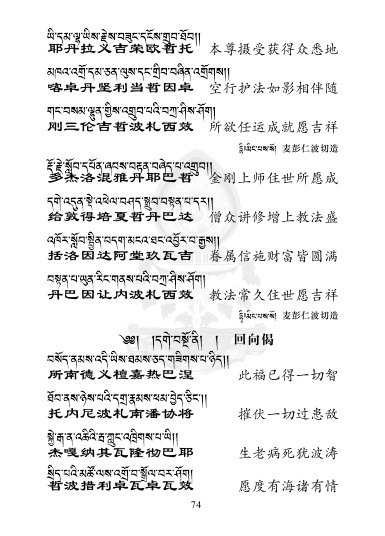 ཡི་དམ་ལྷ་ཡིས་རྗེས་བཟུང་དངོས་གྲུབ་ཐོབ།།
耶丹拉义吉荣欧哲托 本尊摄受获得众悉地
མཁའ་འགྲོ་དམ་ཅན་ལུས་དང་གྲིབ་བཞིན་འགྲོགས།།
喀卓丹坚利当哲因卓 空行护法如影相伴随
གང་བསམ་ལྷུན་གྱིས་འགྲུབ་པའི་བཀྲ་ཤིས་ཤོག།
刚三伦吉哲波札西效 所欲任运成就愿吉祥
麦彭仁波切造
རྡོ་རྗེ་སློབ་དཔོན་ཞབས་བརྟན་བཞེད་པ་འགྲུབ།།
多杰洛混雅丹耶巴哲 金刚上师住世所愿成
དགེ་འདུན་སྡེ་འཕེལ་བཤད་སྒྲུབ་བསྟན་པ་དར།།
给敦得培夏哲丹巴达 僧众讲修增上教法盛
འཁོར་སློབ་སྦྱིན་བདག་མངའ་ཐང་འབྱོར་བ་རྒྱས།།
括洛因达阿堂玖瓦吉 眷属信施财富皆圆满
བསྟན་པ་ཡུན་རིང་གནས་པའི་བཀྲ་ཤིས་ཤོག།
丹巴因让内波札西效 教法常久住世愿吉祥
麦彭仁波切造
༄༅།། །དགེ་བསྔོ་ནི། ། 回向偈
བསོད་ནམས་འདི་ཡིས་ཐམས་ཅད་གཟིགས་པ་ཉིད།།
所南德义檀嘉热巴涅 此福已得一切智
ཐོབ་ནས་ཉེས་པའི་དགྲ་རྣམས་ཕམ་བྱེད་ཅིང་།།
托内尼波札南潘协将 摧伏一切过患敌
སྐྱེ་རྒ་ན་འཆིའི་རྦ་ཀློང་འཁྲིགས་པ་ཡི།།
杰嘎纳其瓦隆彻巴耶 生老病死犹波涛
སྲིད་པའི་མཚོ་ལས་འགྲོ་བ་སྒྲོལ་བར་ཤོག།
哲波措利卓瓦卓瓦效 愿度有海诸有情
74